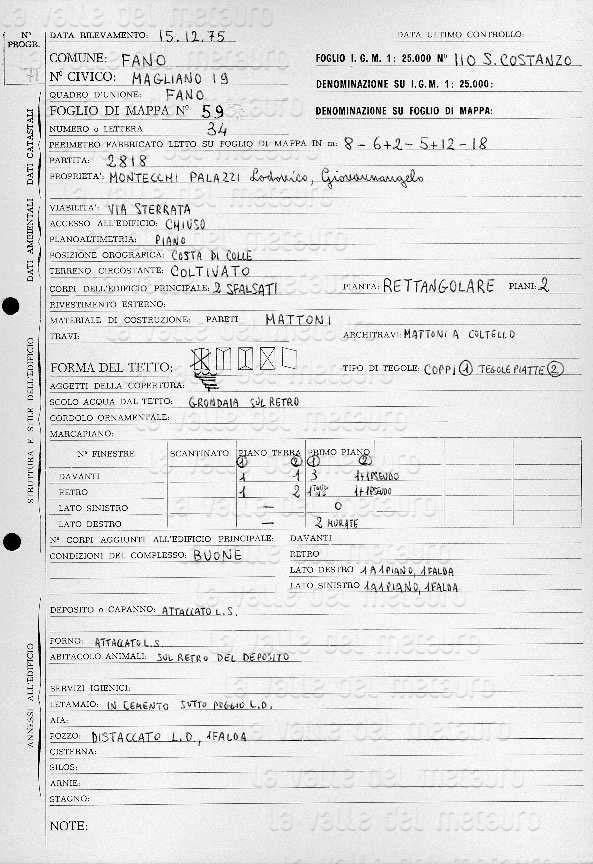 N° PROGR. DATA RILEVAMENTO: 15.12.75 DATA ULTIMO CONTROLLO:
71 COMUNE: FANO FOGLIO I. G. M. 1: 25.000 N° 110 S. COSTANZO
N° CIVICO: MAGLIANO 19 DENOMINAZIONE SU I.G.M. 1: 25.000:
QUADRO D'UNIONE: FANO
FOGLIO DI MAPPA N° 59 DENOMINAZIONE SU FOGLIO DI MAPPA:
NUMERO o LETTERA 34
PERIMETRO FABBRICATO LETTO SU FOGLIO DI MAPPA IN m: 8-6+2-5+12-18
PARTITA: 2818
PROPRIETA': MONTECCHI PALAZZI Lodovico, Giovannangelo
DATI CATASTALI
VIABILITA': VIA STERRATA
ACCESSO ALL'EDIFICIO: CHIUSO
PLANOALTIMETRIA: PIANO
POSIZIONE OROGRAFICA: COSTA DI COLLE
TERRENO CIRCOSTANTE: COLTIVATO
DATI AMBIENTALI
CORPI DELL'EDIFICIO PRINCIPALE: 2 SFALSATI PIANTA: RETTANGOLARE PIANI: 2
RIVESTIMENTO ESTERNO:
MATERIALE DI COSTRUZIONE: PARETI MATTONI
TRAVI: ARCHITRAVI: MATTONI A COLTELLO
FORMA DEL TETTO: TIPO DI TEGOLE: COPPI (1) TEGOLE PIATTE (2)
AGGETTI DELLA COPERTURA:
SCOLO ACQUA DAL TETTO: GRONDAIA SUL RETRO
CORDOLO ORNAMENTALE:
MARCAPIANO:
N° FINESTRE SCANTINATO PIANO TERRA PRIMO PIANO
(1) (2) (1) (2)
DAVANTI 1 1 3 1+1PSEUDO
RETRO 1 2 1 1+1PSEUDO
LATO SINISTRO — 0
LATO DESTRO — 2 MURATE
STRUTTURA E STILE DELL'EDIFICIO
N° CORPI AGGIUNTI ALL'EDIFICIO PRINCIPALE: DAVANTI
CONDIZIONI DEL COMPLESSO: BUONE RETRO
LATO DESTRO 1 A 1 PIANO, 1 FALDA
LATO SINISTRO 1 A 1 PIANO, 1 FALDA
DEPOSITO o CAPANNO: ATTACCATO L.S.
FORNO: ATTACCATO L.S.
ABITACOLO ANIMALI: SUL RETRO DEL DEPOSITO
SERVIZI IGIENICI:
LETAMAIO: IN CEMENTO SOTTO POGGIO L.D.
AIA:
POZZO: DISTACCATO L.D., 1 FALDA
CISTERNA:
SILOS:
ARNIE:
STAGNO:
ANNESSI ALL'EDIFICIO
NOTE:
la valle del metauro